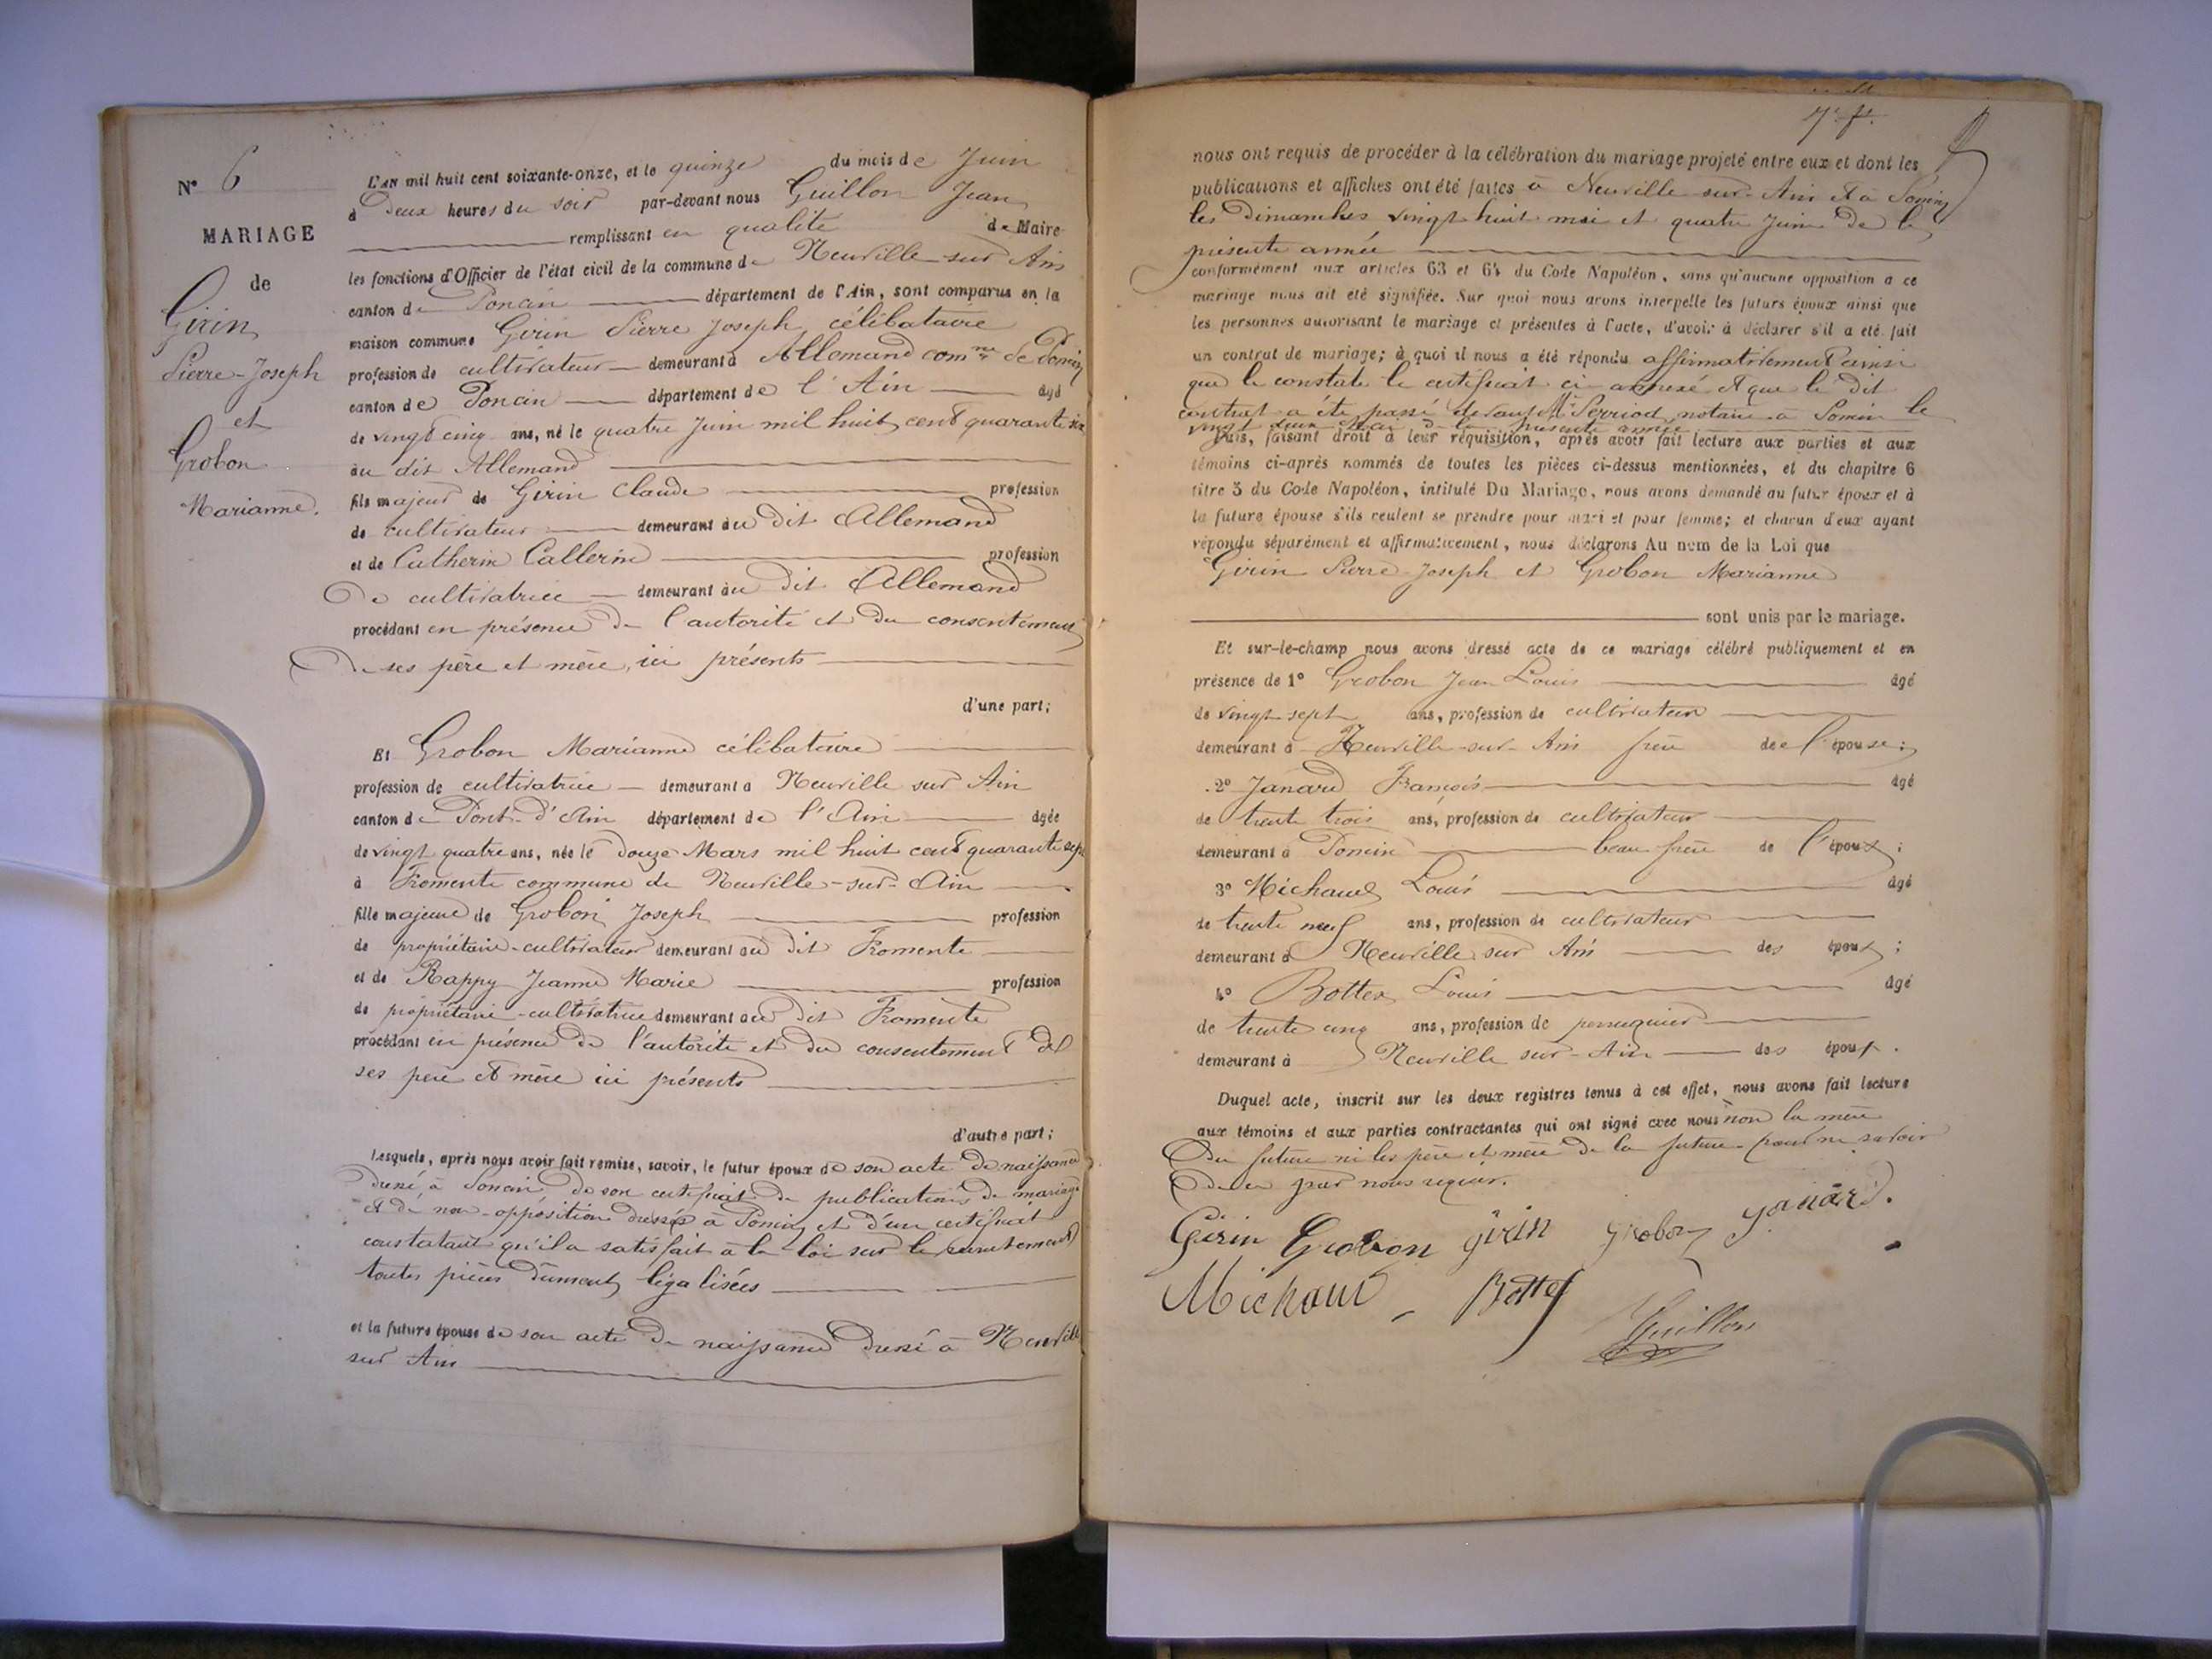 N° 6
MARIAGE
de
Girin
Pierre-Joseph
et
Grobon
Marianne.
L'AN mil huit cent soixante-onze, et le quinze du mois de Juin
à Deux heures du soir par-devant nous Guillon Jean
remplissant en qualité de Maire
les fonctions d'Officier de l'état civil de la commune de Neuville-sur Ain
canton de Poncin département de l'Ain, sont comparus en la
maison commune Girin Pierre Joseph célibataire
profession de cultivateur demeurant à Allemand comne de Poncin
canton de Poncin département de l'Ain âgé
de vingt cinq ans, né le quatre Juin mil huit cent quarante six
au dit Allemand
fils majeur de Girin Claude profession
de cultivateur demeurant au dit Allemand
et de Catherin Callerin profession
De cultivatrice demeurant au dit Allemand
procédant en présence de l'autorité et du consentement
De ses père et mère, ici présents
d'une part;
Et Grobon Marianne célibataire
profession de cultivatrice demeurant à Neuville sur Ain
canton de Pont-d'Ain département de l'Ain âgée
de vingt quatre ans, née le douze Mars mil huit cent quarante sept
à Fromente commune de Neuville-sur-Ain
fille majeure de Grobon Joseph profession
de propriétaire-cultivateur demeurant au dit Fromente
et de Rappy Jeanne Marie profession
de propriétaire-cultivatrice demeurant au dit Fromente
procédant en présence de l'autorité et du consentement de
ses père et mère ici présents
d'autre part;
Lesquels, après nous avoir fait remise, savoir, le futur époux de son acte de naissance
dressé à Poncin, de son certificat de publications de mariage
et de non-opposition dressés à Poncin et d'un certificat
constatant qu'il a satisfait à la loi sur le recrutement
toutes pièces dûment légalisées
et la future épouse de son acte de naissance dressé à Neuville
sur Ain
7e ft.
nous ont requis de procéder à la célébration du mariage projeté entre eux et dont les
publications et affiches ont été faites à Neuville sur-Ain et à Poncin
les Dimanches vingt huit mai et quatre Juin de la
présente année
conformément aux articles 63 et 64 du Code Napoléon, sans qu'aucune opposition a ce
mariage nous ait été signifiée. Sur quoi nous avons interpellé les futurs époux ainsi que
les personnes autorisant le mariage et présentes à l'acte, d'avoir à déclarer s'il a été fait
un contrat de mariage; à quoi il nous a été répondu affirmativement ainsi
que le constate le certificat ci annexé et que le dit
contrat a été passé devant Me Perriod, notaire à Poncin le
vingt deux Mai de la présente année
Puis, faisant droit à leur réquisition, après avoir fait lecture aux parties et aux
témoins ci-après nommés de toutes les pièces ci-dessus mentionnées, et du chapitre 6
titre 5 du Code Napoléon, intitulé Du Mariage, nous avons demandé au futur époux et à
la future épouse s'ils veulent se prendre pour mari et pour femme; et chacun d'eux ayant
répondu séparément et affirmativement, nous déclarons Au nom de la Loi que
Girin Pierre-Joseph et Grobon Marianne
sont unis par le mariage.
Et sur-le-champ nous avons dressé acte de ce mariage célébré publiquement et en
présence de 1° Grobon Jean Louis âgé
de vingt sept ans, profession de cultivateur
demeurant à Neuville-sur-Ain frère de l'épouse;
2° Janard François âgé
de trente trois ans, profession de cultivateur
demeurant à Poncin beau frère de l'époux;
3° Michaud Louis âgé
de trente neuf ans, profession de cultivateur
demeurant à Neuville sur Ain des époux;
4° Bottex Louis âgé
de trente cinq ans, profession de perruquier
demeurant à Neuville sur-Ain des époux.
Duquel acte, inscrit sur les deux registres tenus à cet effet, nous avons fait lecture
aux témoins et aux parties contractantes qui ont signé avec nous non la mère
du futur ni les père et mère de la future pour ne savoir
de ce par nous requis.
Girin Grobon girin grobon Janard.
Michaud Bottex
Guillon